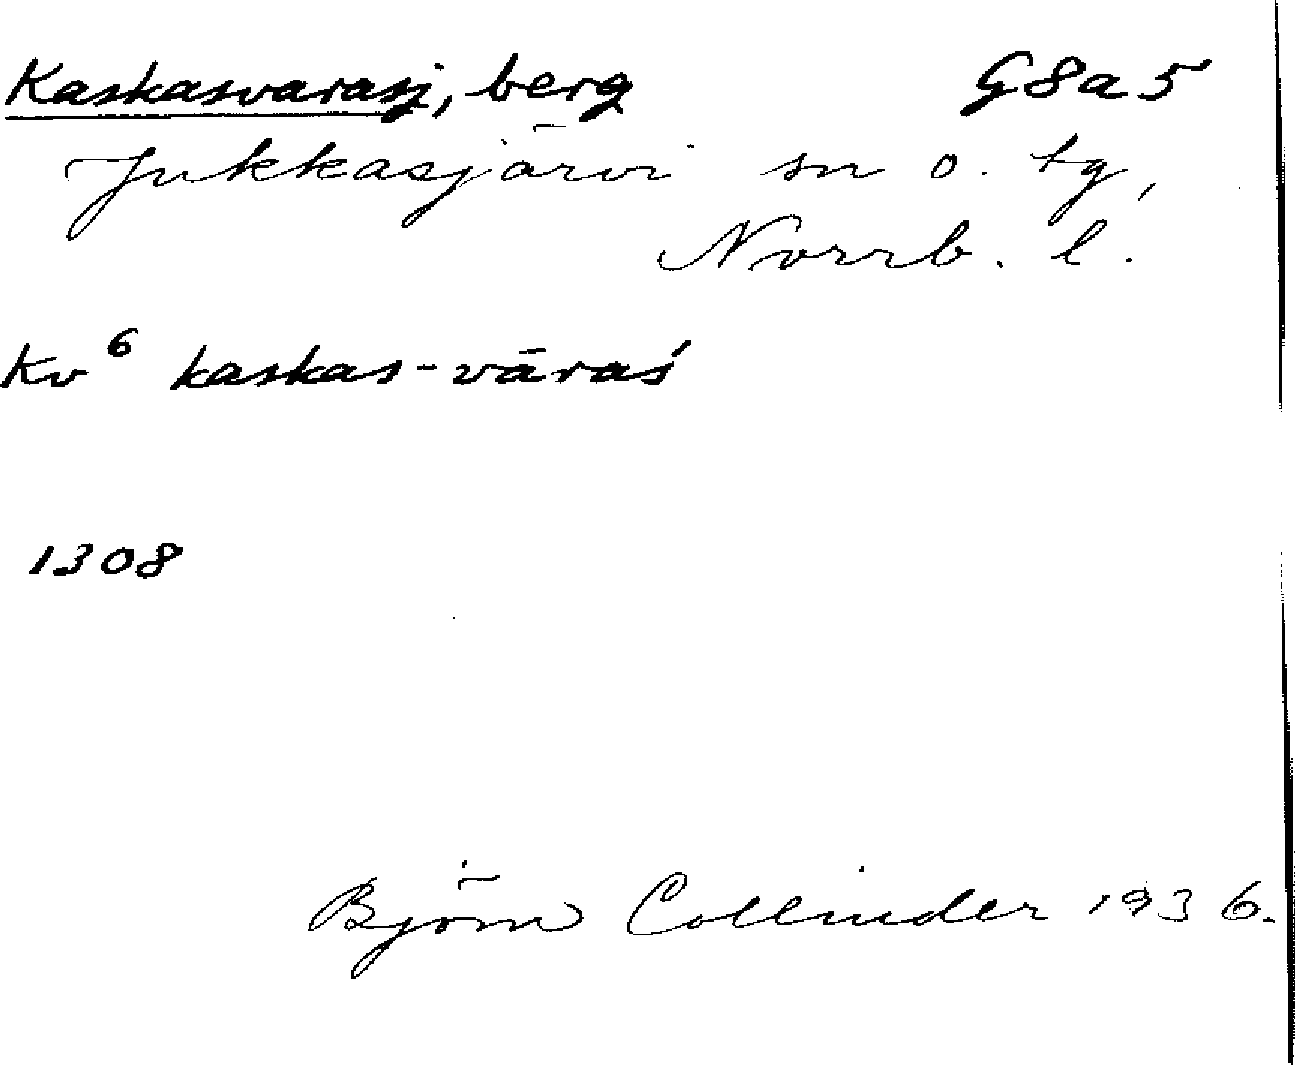 Kaskasvarasj, berg G8a5
Jukkasjärvi sn o. tg,
Norrb. l.
Kv⁶ kaskas-vāraś
1308
Björn Collinder 1936.